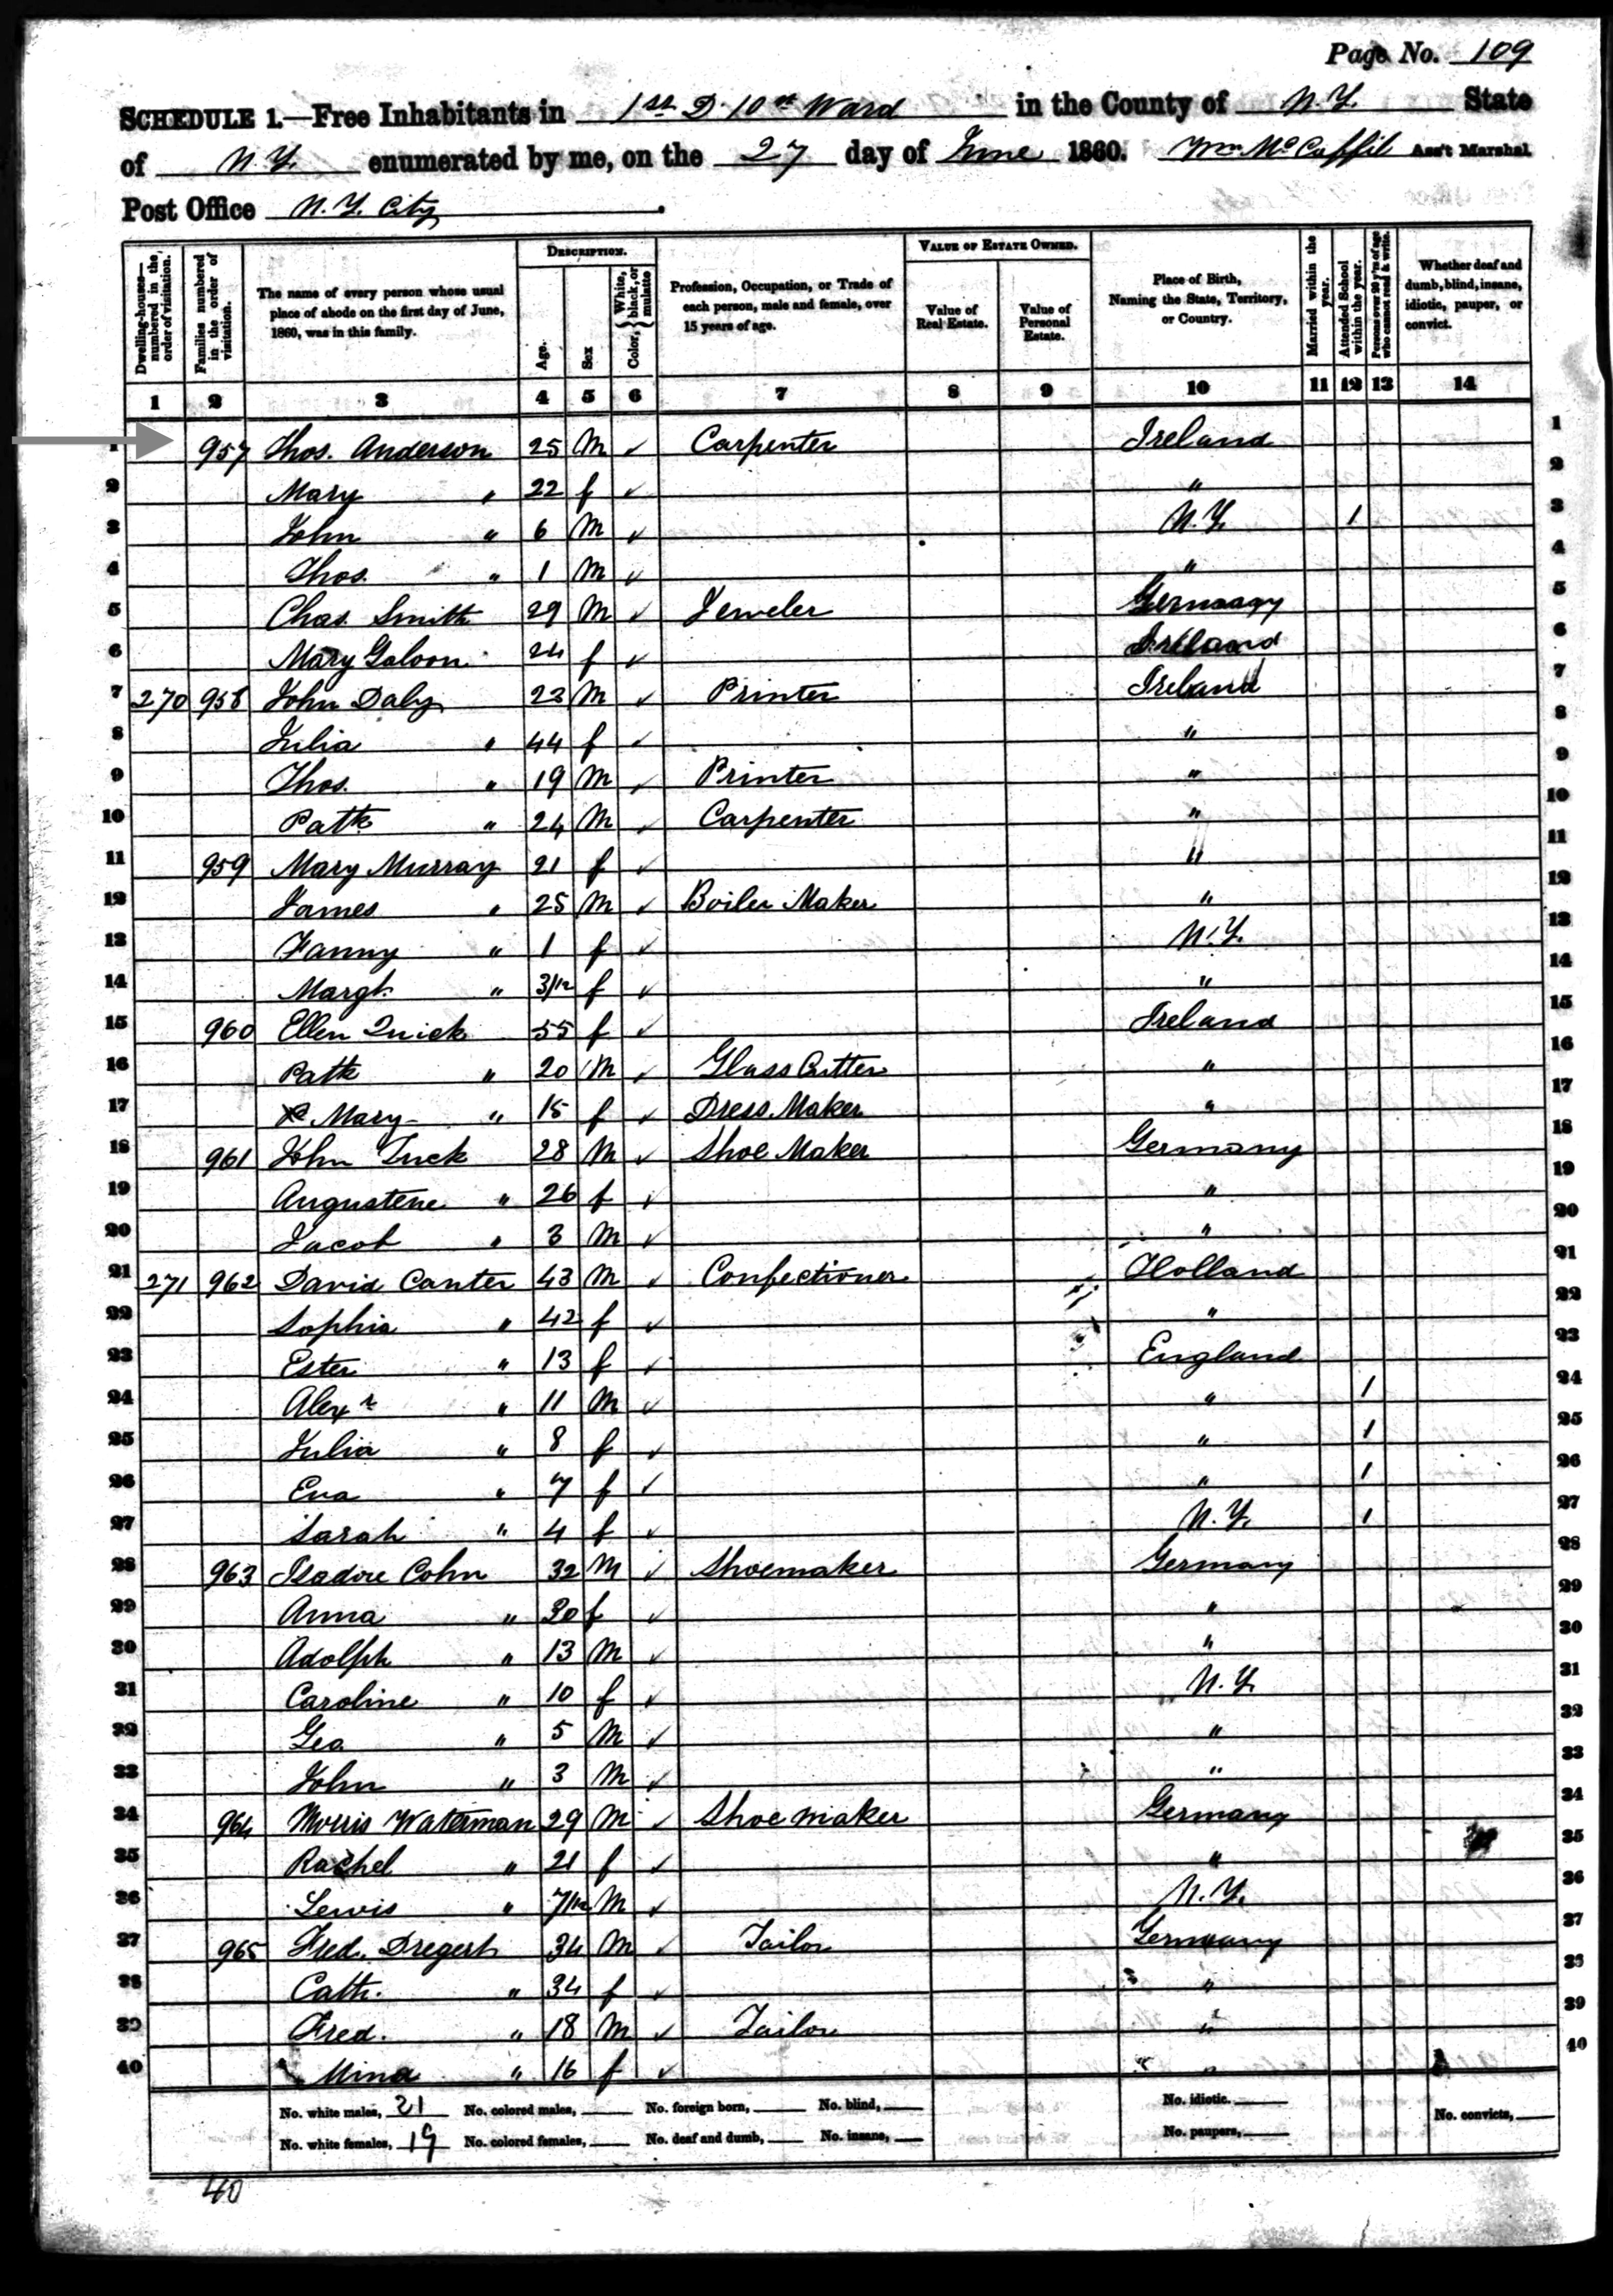 Page No. 109
SCHEDULE 1.—Free Inhabitants in 1st D. 10th Ward in the County of N.Y. State
of N.Y. enumerated by me, on the 27 day of June 1860. Wm Mc Ass't Marshal
Post Office N.Y. City.
Dwelling-houses—numbered in the order of visitation. Families numbered in the order of visitation. The name of every person whose usual place of abode on the first day of June, 1860, was in this family. DESCRIPTION. Age. Sex Color, {White, black, or mulatto Profession, Occupation, or Trade of each person, male and female, over 15 years of age. VALUE OF ESTATE OWNED. Value of Real Estate. Value of Personal Estate. Place of Birth, Naming the State, Territory, or Country. Married within the year. Attended School within the year. Persons over 20 y'rs of age who cannot read & write. Whether deaf and dumb, blind, insane, idiotic, pauper, or convict.
1 2 3 4 5 6 7 8 9 10 11 12 13 14
1 957 Thos. Anderson 25 M ✓ Carpenter Ireland 1
2 Mary " 22 f ✓ " 2
3 John " 6 M ✓ N.Y. 1 3
4 Thos. " 1 M ✓ " 4
5 Chas. Smith 29 M ✓ Jeweler Germany 5
6 Mary Galoon 24 f ✓ Ireland 6
7 270 958 John Daly 23 M ✓ Printer Ireland 7
8 Julia " 44 f ✓ " 8
9 Thos. " 19 M ✓ Printer " 9
10 Patk " 24 M ✓ Carpenter " 10
11 959 Mary Murray 21 f ✓ " 11
12 James " 25 M ✓ Boiler Maker " 12
13 Fanny " 1 f ✓ N.Y. 13
14 Margt. " 3/12 f ✓ " 14
15 960 Ellen Quick 55 f ✓ Ireland 15
16 Patk " 20 M ✓ Glass Cutter " 16
17 Mary " 15 f ✓ Dress Maker " 17
18 961 John Tuck 28 M ✓ Shoe Maker Germany 18
19 Augustene " 26 f ✓ " 19
20 Jacob " 3 M ✓ " 20
21 271 962 David Canter 43 M ✓ Confectioner Holland 21
22 Sophia " 42 f ✓ " 22
23 Ester " 13 f ✓ England 23
24 Alexr " 11 M ✓ " 1 24
25 Julia " 8 f ✓ " 1 25
26 Eva " 7 f ✓ " 1 26
27 Sarah " 4 f ✓ N.Y. 1 27
28 963 Isadore Cohn 32 M ✓ Shoemaker Germany 28
29 Anna " 30 f ✓ " 29
30 Adolph " 13 M ✓ " 30
31 Caroline " 10 f ✓ N.Y. 31
32 Geo " 5 M ✓ " 32
33 John " 3 M ✓ " 33
34 964 Morris Waterman 29 M ✓ Shoe maker Germany 34
35 Rachel " 21 f ✓ " 35
36 Lewis " 7/12 M ✓ N.Y. 36
37 965 Fred. Dregert 34 M ✓ Tailor Germany 37
38 Cath. " 34 f ✓ " 38
39 Fred. " 18 M ✓ Tailor " 39
40 Mina " 16 f ✓ " 40
No. white males, 21 No. colored males, No. foreign born, No. blind, No. idiotic. No. convicts,
No. white females, 19 No. colored females, No. deaf and dumb, No. insane, No. paupers,
40